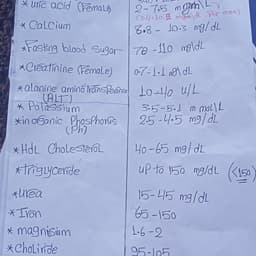 * uric acid (Female) 2-7.5 mgm/L
* Calcium 8.8 - 10.3 mg/dL
* Fasting blood sugar 70-110 mg/dL
* Creatinine (Female) 0.7-1.1 mg/dL
* alanine aminotransferase 10-40 U/L
(ALT)
* Potassium 3.5-5.1 m mol/L
* inorganic Phosphorus 2.5-4.5 mg/dL
(Ph)
* HdL Cholesterol 40-65 mg/dL
* Triglyceride up to 150 mg/dL (<150)
* urea 15-45 mg/dL
* Iron 65-150
* magnisium 1.6-2
* Choliride 95-105